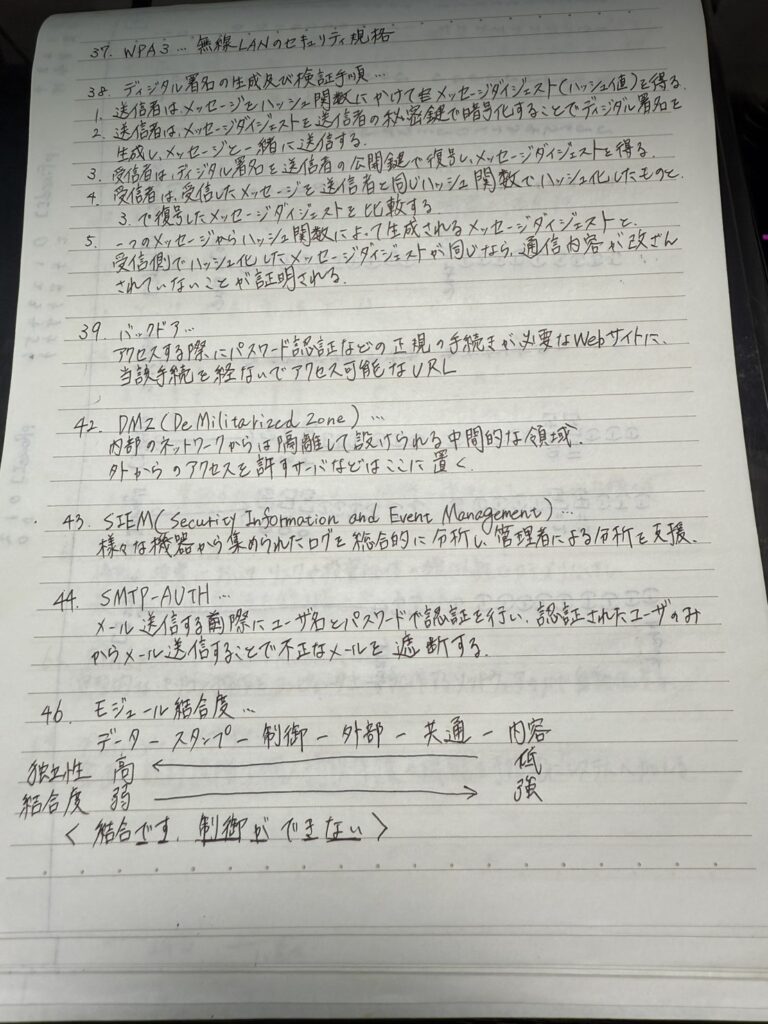 37. WPA3 … 無線LANのセキュリティ規格
38. ディジタル署名の生成及び検証手順…
1. 送信者はメッセージをハッシュ関数にかけてメッセージダイジェスト(ハッシュ値)を得る.
2. 送信者は、メッセージダイジェストを送信者の秘密鍵で暗号化することでディジタル署名を
生成し、メッセージと一緒に送信する.
3. 受信者は、ディジタル署名を送信者の公開鍵で復号し、メッセージダイジェストを得る.
4. 受信者は、受信したメッセージを送信者と同じハッシュ関数でハッシュ化したものと、
3. で復号したメッセージダイジェストを比較する.
5. 一つのメッセージからハッシュ関数によって生成されるメッセージダイジェストと、
受信側でハッシュ化したメッセージダイジェストが同じなら、通信内容が改ざん
されていないことが証明される.
39. バックドア…
アクセスする際にパスワード認証などの正規の手続きが必要なWebサイトに、
当該手続を経ないでアクセス可能なURL
42. DMZ(DeMilitarized Zone) …
内部のネットワークからは隔離して設けられる中間的な領域.
外からのアクセスを許すサーバなどはここに置く.
43. SIEM(Security Information and Event Management) …
様々な機器から集められたログを総合的に分析し、管理者による分析を支援.
44. SMTP-AUTH …
メール送信する際にユーザ名とパスワードで認証を行い、認証されたユーザのみ
からメール送信することで不正なメールを遮断する.
46. モジュール結合度 …
データ − スタンプ − 制御 − 外部 − 共通 − 内容
独立性 高 ← 低
結合度 弱 → 強
〈 結合です、制御ができない 〉